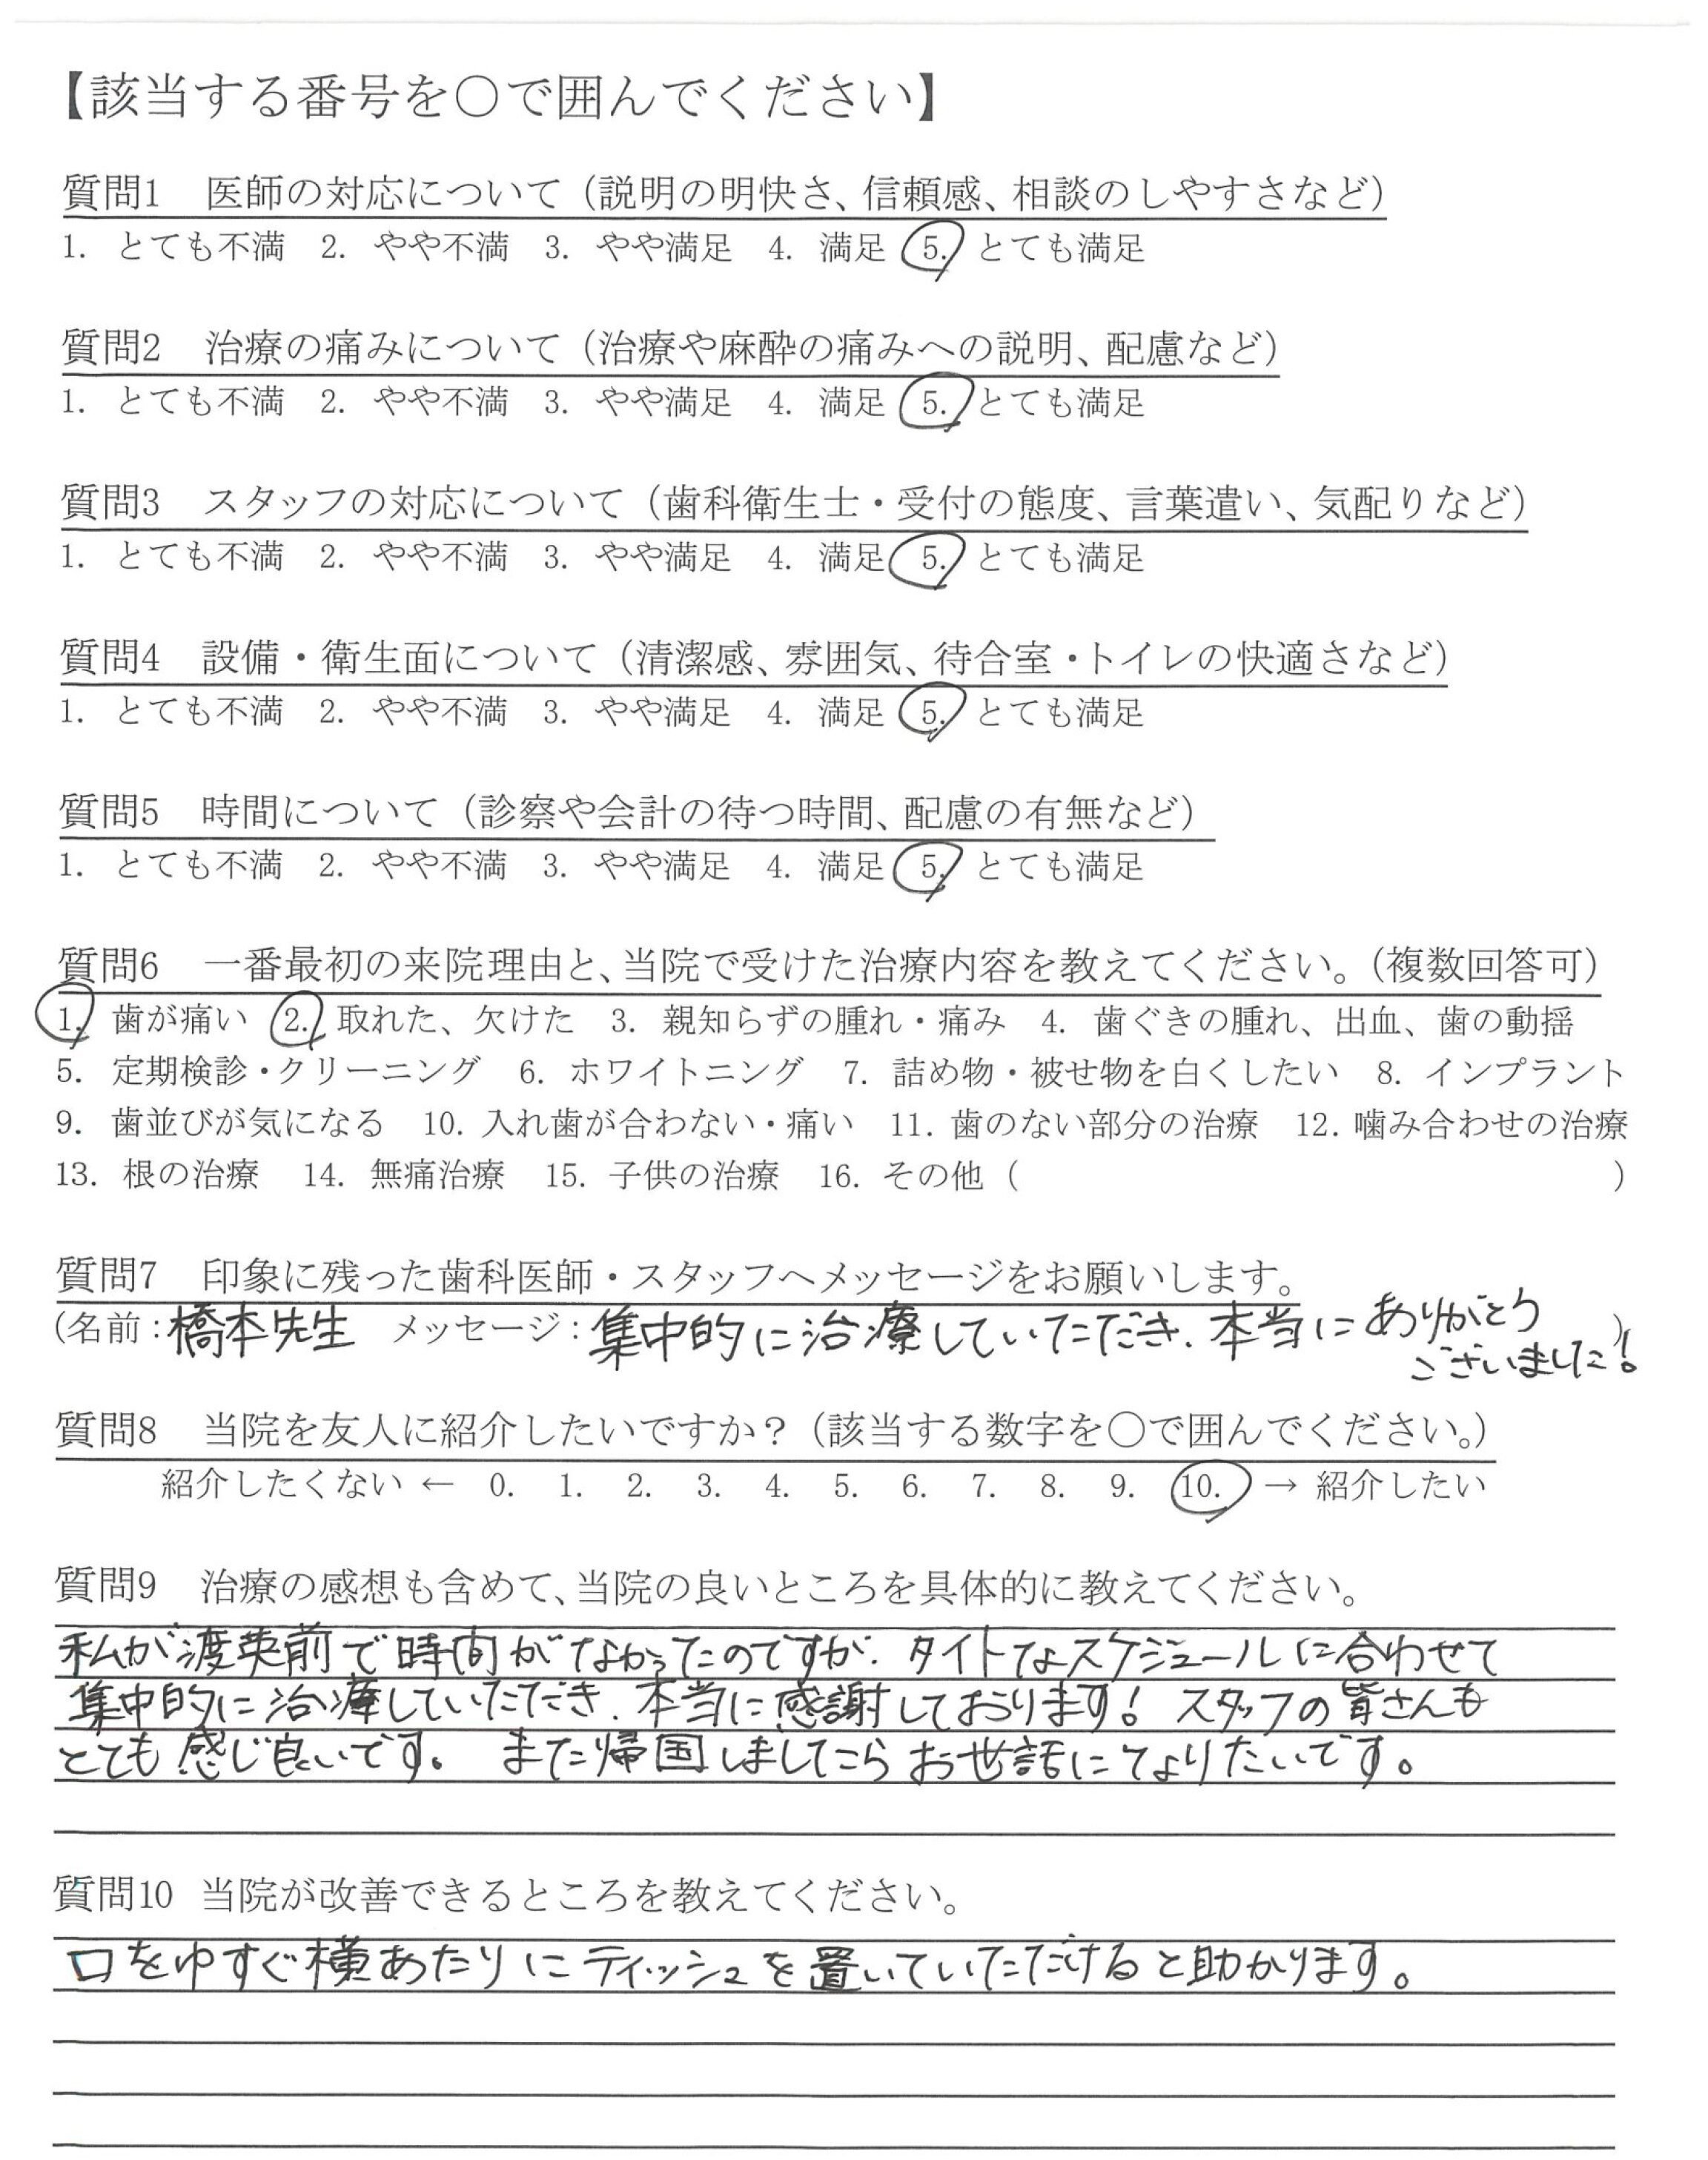 【該当する番号を○で囲んでください】
質問1　医師の対応について（説明の明快さ、信頼感、相談のしやすさなど）
1. とても不満　2. やや不満　3. やや満足　4. 満足　5. とても満足
質問2　治療の痛みについて（治療や麻酔の痛みへの説明、配慮など）
1. とても不満　2. やや不満　3. やや満足　4. 満足　5. とても満足
質問3　スタッフの対応について（歯科衛生士・受付の態度、言葉遣い、気配りなど）
1. とても不満　2. やや不満　3. やや満足　4. 満足　5. とても満足
質問4　設備・衛生面について（清潔感、雰囲気、待合室・トイレの快適さなど）
1. とても不満　2. やや不満　3. やや満足　4. 満足　5. とても満足
質問5　時間について（診察や会計の待つ時間、配慮の有無など）
1. とても不満　2. やや不満　3. やや満足　4. 満足　5. とても満足
質問6　一番最初の来院理由と、当院で受けた治療内容を教えてください。（複数回答可）
1. 歯が痛い　2. 取れた、欠けた　3. 親知らずの腫れ・痛み　4. 歯ぐきの腫れ、出血、歯の動揺
5. 定期検診・クリーニング　6. ホワイトニング　7. 詰め物・被せ物を白くしたい　8. インプラント
9. 歯並びが気になる　10. 入れ歯が合わない・痛い　11. 歯のない部分の治療　12. 噛み合わせの治療
13. 根の治療　14. 無痛治療　15. 子供の治療　16. その他（　　　）
質問7　印象に残った歯科医師・スタッフへメッセージをお願いします。
（名前：橋本先生　メッセージ：集中的に治療していただき、本当にありがとう
ございました！）
質問8　当院を友人に紹介したいですか？（該当する数字を○で囲んでください。）
紹介したくない ← 0. 1. 2. 3. 4. 5. 6. 7. 8. 9. 10. → 紹介したい
質問9　治療の感想も含めて、当院の良いところを具体的に教えてください。
私が渡英前で時間がなかったのですが、タイトなスケジュールに合わせて
集中的に治療していただき、本当に感謝しております！ スタッフの皆さんも
とても感じ良いです。 また帰国しましたらお世話になりたいです。
質問10　当院が改善できるところを教えてください。
口をゆすぐ横あたりにティッシュを置いていただけると助かります。